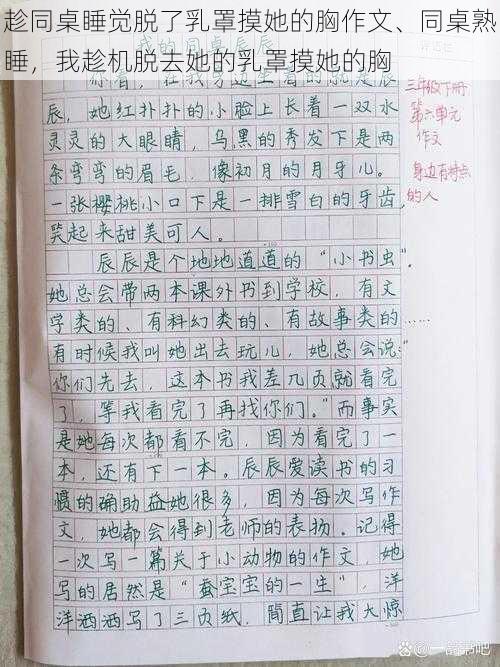 我的同桌辰辰
辰，她红扑扑的小脸上长着一双水
灵灵的大眼睛，乌黑的秀发下是两
条弯弯的眉毛，像初月的月牙儿。
一张樱桃小口下是一排雪白的牙齿，
笑起来甜美可人。
辰辰是个地地道道的“小书虫”。
她总会带两本课外书到学校，有文
学类的、有科幻类的、有故事类的……
有时候我叫她出去玩儿，她总会说：“
你们先去，这本书我差几页就看完
了，等我看完了再找你们。”而事实
是她每次都看不完，因为看完了一
本，还有下一本。辰辰爱读书的习
惯的确助益她很多，因为每次写作
文，她都会得到老师的表扬。记得
一次写一篇关于小动物的作文，她
写的居然是“蚕宝宝的一生”，洋
洋洒洒写了三页纸，简直让我大惊
三年级下册
第六单元
作文
身边有特点
的人